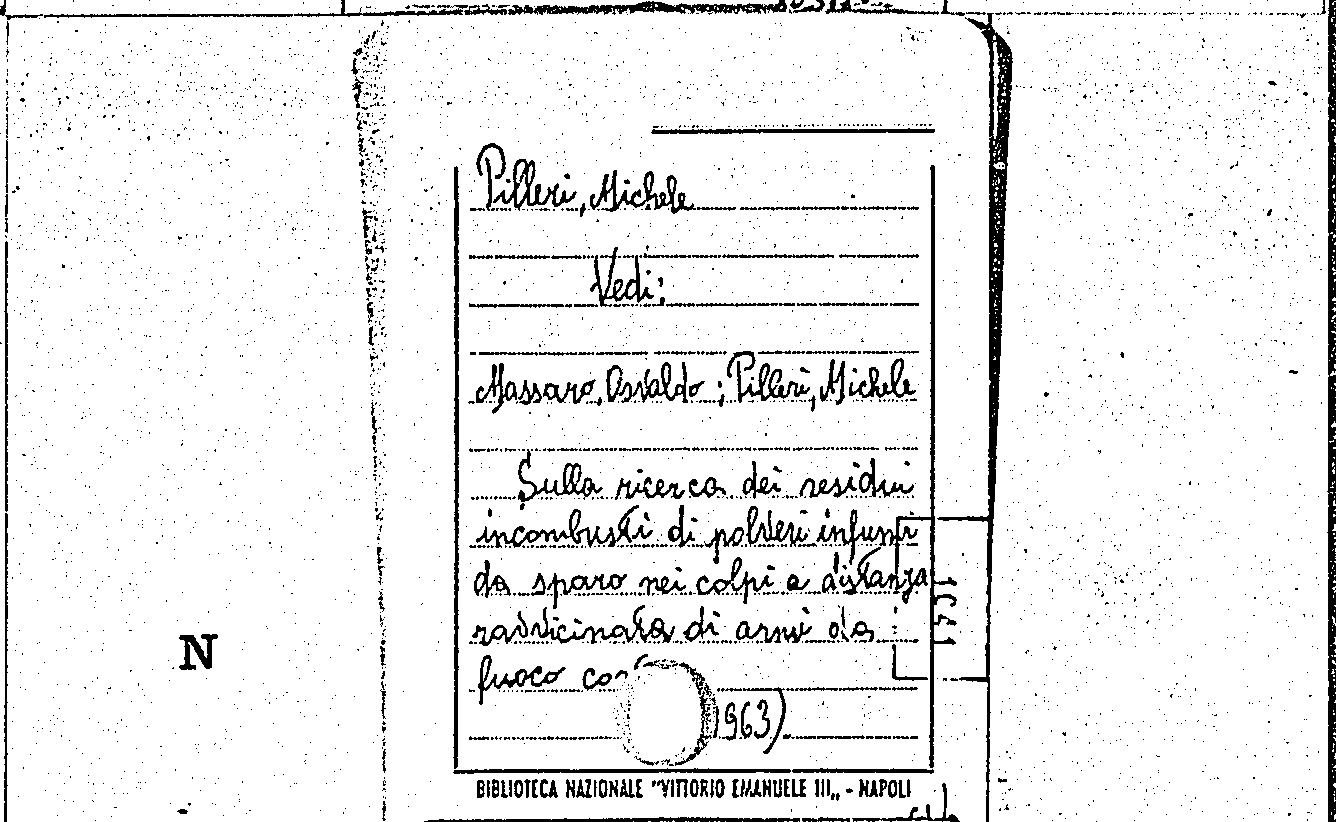 Pilleri, Michele
Vedi:
Massaro, Osvaldo ; Pilleri, Michele
Sulla ricerca dei residui
incombusti di polveri infumi
da sparo nei colpi a distanza
ravvicinata di armi da
fuoco
963).
N
BIBLIOTECA NAZIONALE "VITTORIO EMANUELE III„ - NAPOLI